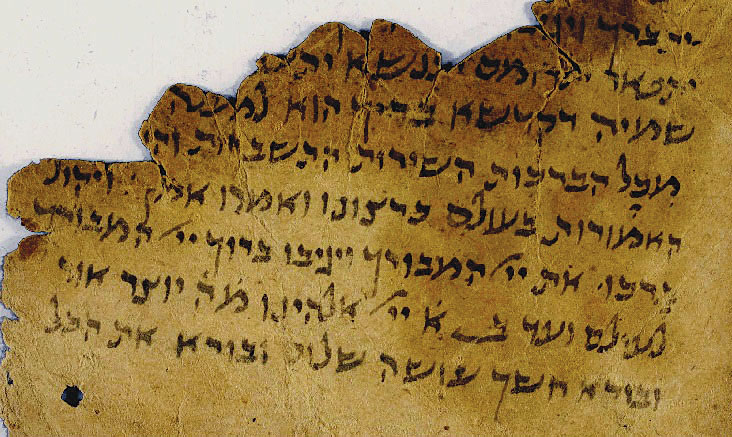 יתברך
יתפאר יתרומם יתנשא
שמיה דקדשא בריך הוא למעלה
מכל הברכות השירות התשבחות
האמורות בעולם כרצונו ואמרו אמן
ברכו את ייי המבורך ויניבו ברוך ייי המבורך
לעולם ועד ב א ייי אלהינו מה יוצר אור
ובורא חשך עושה שלום ובורא את הכל